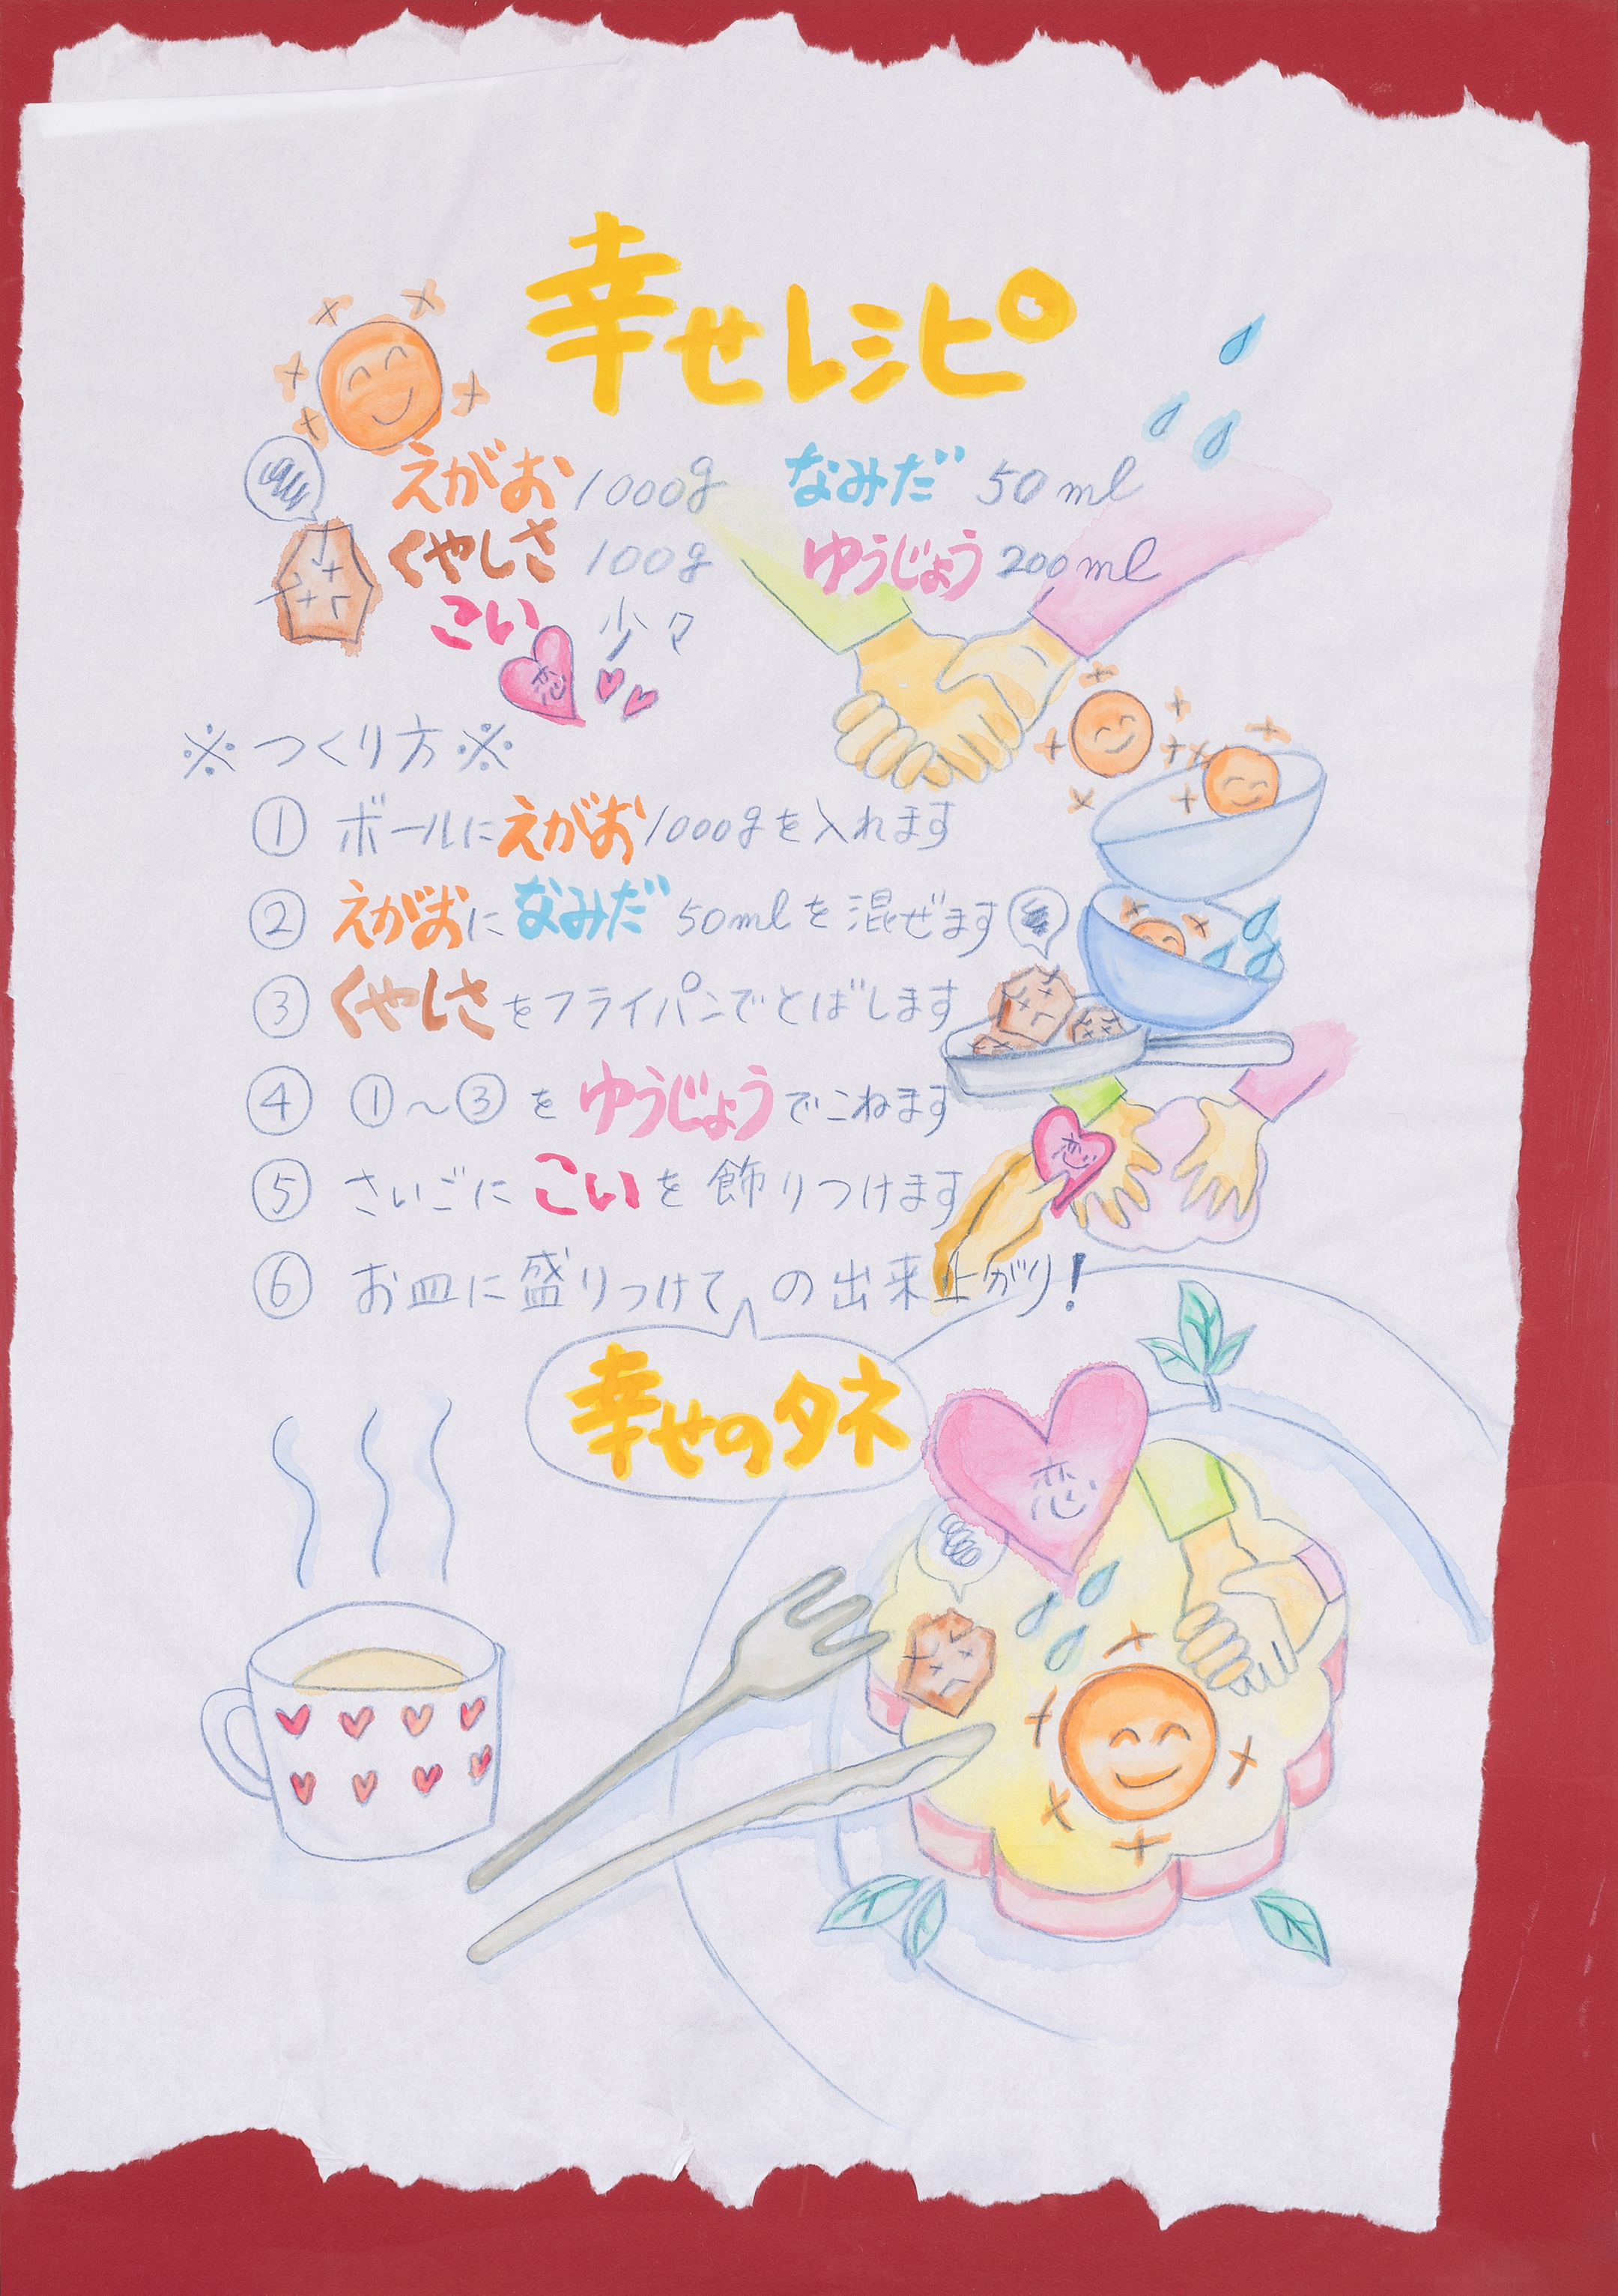 幸せレシピ
えがお 1000g なみだ 50ml
くやしさ 100g ゆうじょう 200ml
こい 少々
恋
※つくり方※
① ボールにえがお1000gを入れます
② えがおになみだ50mlを混ぜます
③ くやしさをフライパンでとばします
④ ①～③をゆうじょうでこねます
恋
⑤ さいごにこいを飾りつけます
⑥ お皿に盛りつけての出来上がり!
幸せのタネ
恋